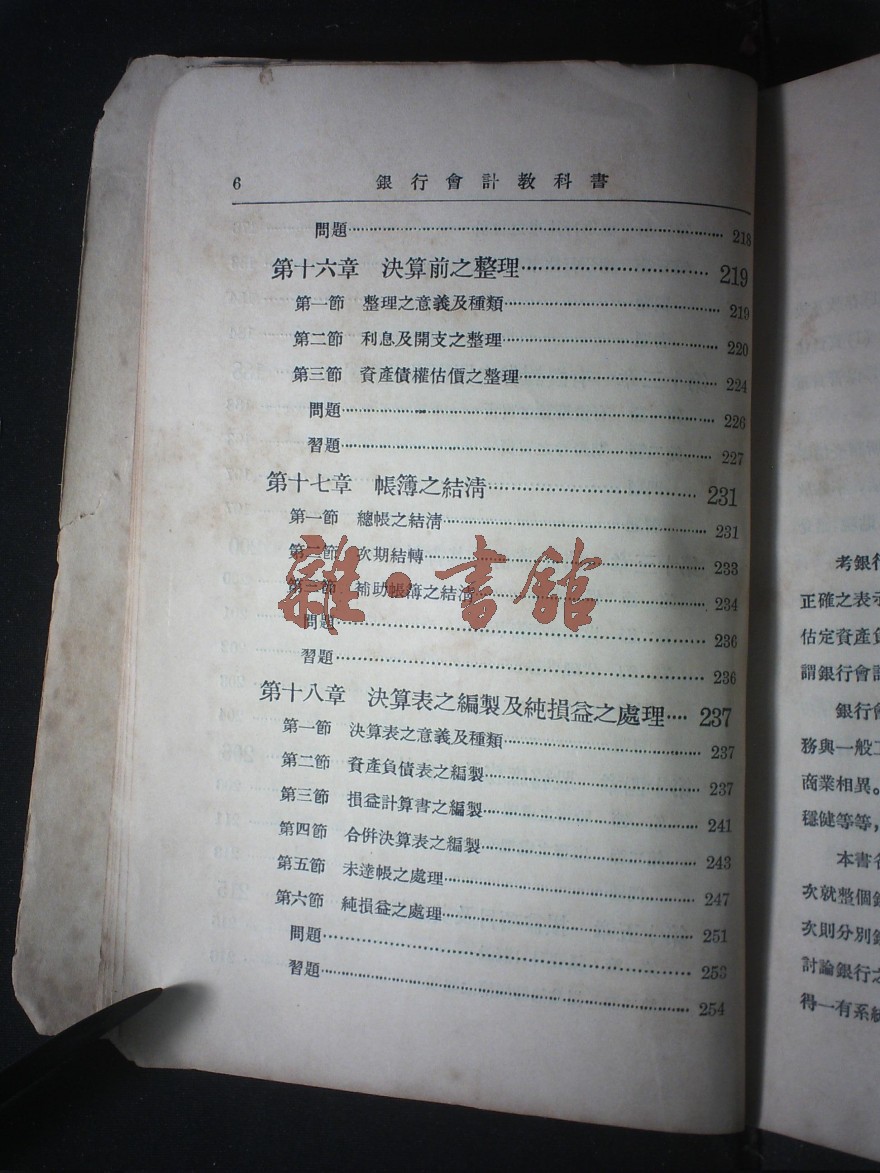 6 銀行會計教科書
問題 218
第十六章 決算前之整理 219
第一節 整理之意義及種類 219
第二節 利息及開支之整理 220
第三節 資產債權估價之整理 224
問題 226
習題 227
第十七章 帳簿之結淸 231
第一節 總帳之結淸 231
第二節 次期結轉 233
第三節 補助帳簿之結淸 234
問題 236
習題 236
第十八章 決算表之編製及純損益之處理 237
第一節 決算表之意義及種類 237
第二節 資產負債表之編製 237
第三節 損益計算書之編製 241
第四節 合倂決算表之編製 243
第五節 未達帳之處理 247
第六節 純損益之處理 251
問題 253
習題 254
雜·書館
考銀行
正確之表示
估定資產負
謂銀行會計
銀行會
務與一般工
商業相異。
穩健等等,
本書各
次就整個銀
次則分別銀
討論銀行之
得一有系統